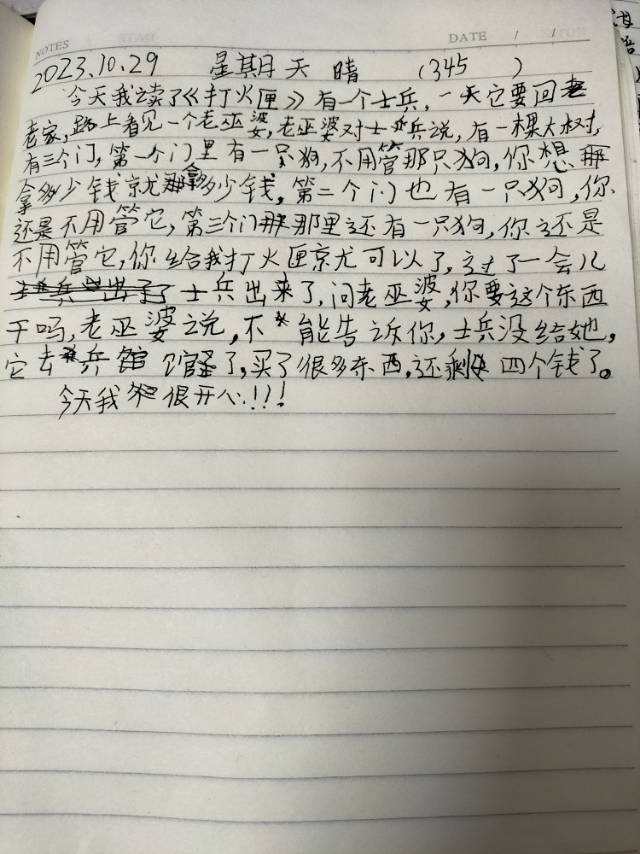 NOTES
DATE / /
2023.10.29 星期天 晴 (345 )
今天我读了《打火匣》有一个士兵,一天它要回
老家,路上看见一个老巫婆,老巫婆对士兵说,有一棵大树,
有三个门,第一个门里有一只狗,不用管那只狗,你想
拿多少钱就拿多少钱,第二个门也有一只狗,你
还是不用管它,第三个门那里还有一只狗,你还是
不用管它,你给我打火匣就可以了,过了一会儿
士兵出来了,问老巫婆,你要这个东西
干吗,老巫婆说,不能告诉你,士兵没给她,
它去兵馆 了,买了很多东西,还剩四个钱了。
今天我很开心!!!